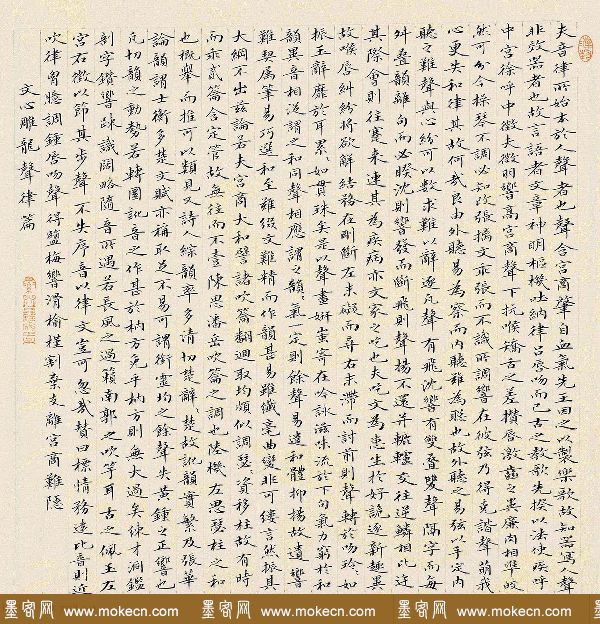 夫音律所始本於人聲者也聲含宮商肇自血氣先王因之以製樂歌故知器寫人聲
非效器者也故言語者文章神明樞機吐納律呂唇吻而已古之教歌先揆以法使疾呼
中宮徐呼中徵夫徵羽響高宮商聲下抗喉矯舌之差攢唇激齒之異廉肉相準皎
然可分今操琴不調必知改張摛文乖張而不識所調響在彼弦乃得克諧聲萌我
心更失和律其故何哉良由外聽易為察而內聽難為聰也故外聽之易弦以手定內
聽之難聲與心紛可以數求難以辭逐凡聲有飛沈響有雙疊雙聲隔字而每
舛疊韻離句而必睽沈則響發而斷飛則聲揚不還並轆轤交往逆鱗相比迕
其際會則往蹇來連其為疾病亦文家之吃也夫吃文為患生於好詭逐新趣異
故喉唇糾紛將欲解結務在剛斷左未礙而尋右末滯而討前則聲轉於吻玲玲如
振玉辭靡於耳累累如貫珠矣是以聲畫妍蚩寄在吟詠滋味流於下句氣力窮於和
韻異音相從謂之和同聲相應謂之韻氣一定則餘聲易遣和體抑揚故遺響
難契屬筆易巧選和至難綴文難精而作韻甚易雖纖毫曲變非可縷言然振其
大綱不出茲論若夫宮商大和譬諸吹籥翻迴取均頗似調瑟瑟資移柱故有時
而乖貳籥含定管故無往而不壹陳思潘岳吹籥之調也陸機左思瑟柱之和
也概舉而推可以類見又詩人綜韻率多清切楚辭辭楚故訛韻實繁及張華
論韻謂士衡多楚文賦亦稱取足不易可謂銜靈均之餘聲失黃鍾之正響也
凡切韻之動勢若轉圜訛音之作甚於枘方免乎枘方則無大過矣練才洞鑒
剖字鑽響踈識闊略隨音所遇若長風之過籟南郭之吹竽耳古之佩玉左
宮右徵以節其步聲不失序音以律文豈可忽哉贊曰標情務遠比音則近
吹律胸臆調鍾唇吻聲得鹽梅響滑榆槿割棄支離宮商難隱
文心雕龍聲律篇
墨客网 www.mokecn.com 墨客网 www.mokecn.com 墨客网 www.mokecn.com